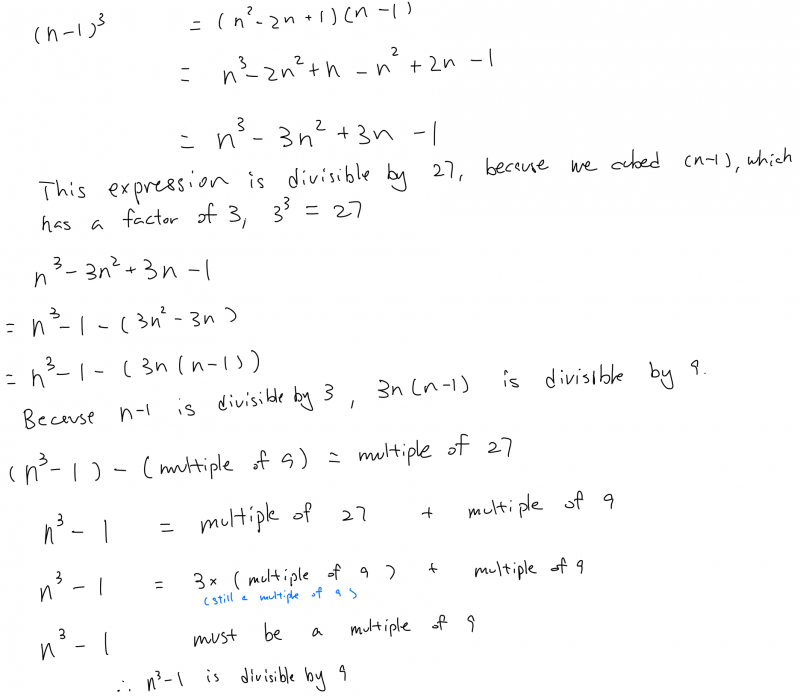 (n-1)³ = (n²-2n+1)(n-1)
= n³-2n²+n-n²+2n-1
= n³-3n²+3n-1
This expression is divisible by 27, because we cubed (n-1), which
has a factor of 3, 3³ = 27
n³-3n²+3n-1
= n³-1-(3n²-3n)
= n³-1-(3n(n-1))
Because n-1 is divisible by 3, 3n(n-1) is divisible by 9.
(n³-1)-(multiple of 9) = multiple of 27
n³-1 = multiple of 27 + multiple of 9
n³-1 = 3×(multiple of 9) + multiple of 9
(still a multiple of 9)
n³-1 must be a multiple of 9
∴ n³-1 is divisible by 9